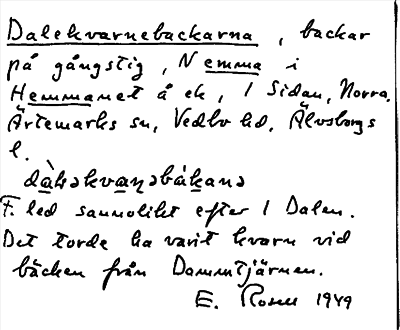 Dalekvarnebackarna, backar
på gångstig, N Hemma i
Hemmanet å ek, 1 Sidan, Norra.
Ärtemarks sn, Vedbo hd, Älvsborgs
l.
F. led sannolikt efter 1 Dalen.
Det torde ha varit kvarn vid
bäcken från Dammtjärnen.
E. Rosell 1949